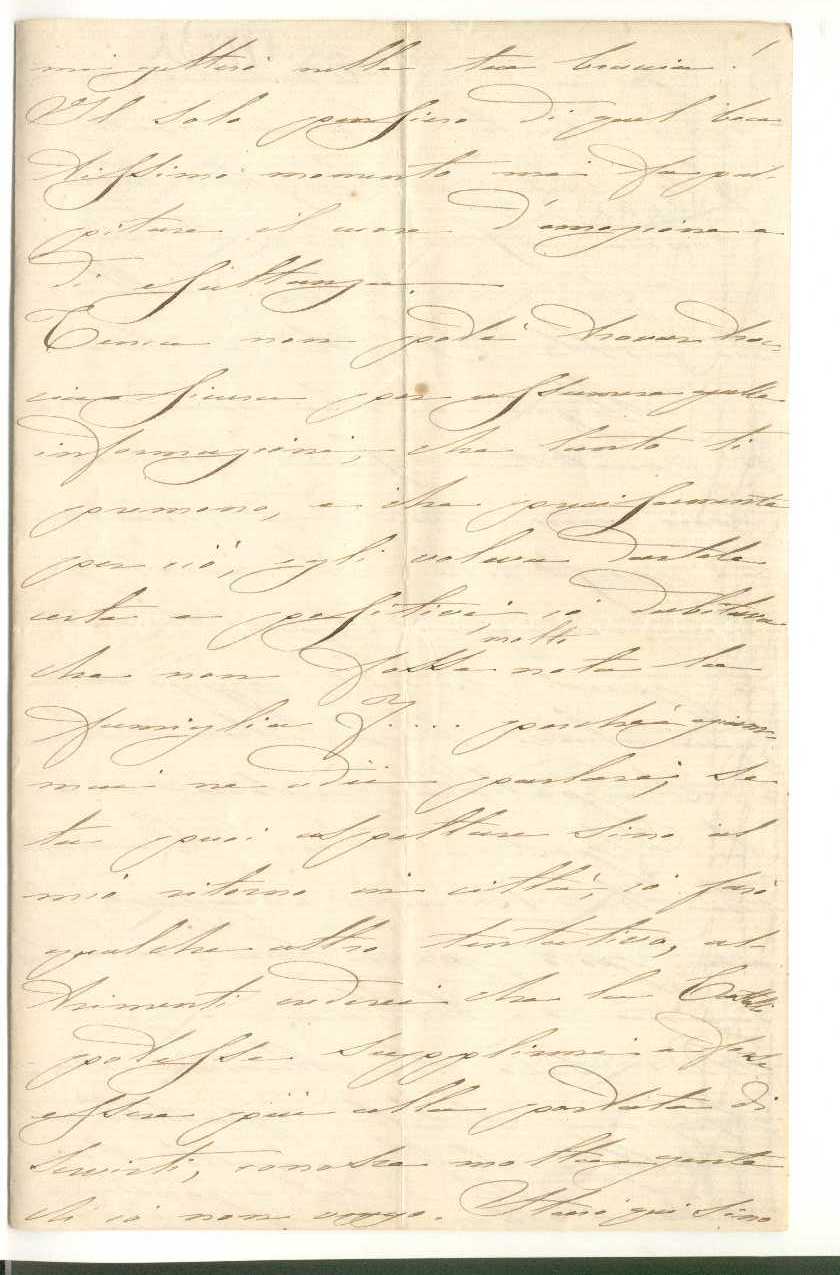 mi getterò nelle tue braccia!
Il solo pensiero di quel bea-
tissimo momento mi fa pal-
pitare il cuore d'emozione e
di esultanza.
non potè trovar trac-
cia sicura per assumere quelle
informazioni, che tanto ti
premono, e che precisamente
per ciò, egli voleva dartele
certe e positive; io dubitava
molto
che non fosse nota la
famiglia Z.... perchè giam-
mai ne udii parlare; se
tu puoi aspettare sino al
mio ritorno in città, io farò
qualche altro tentativo, al-
trimenti crederei che la
potesse supplirmi e forse
essere più alla portata di
servirti, conosce molta gente
ch'io non veggo. Starò quì sino